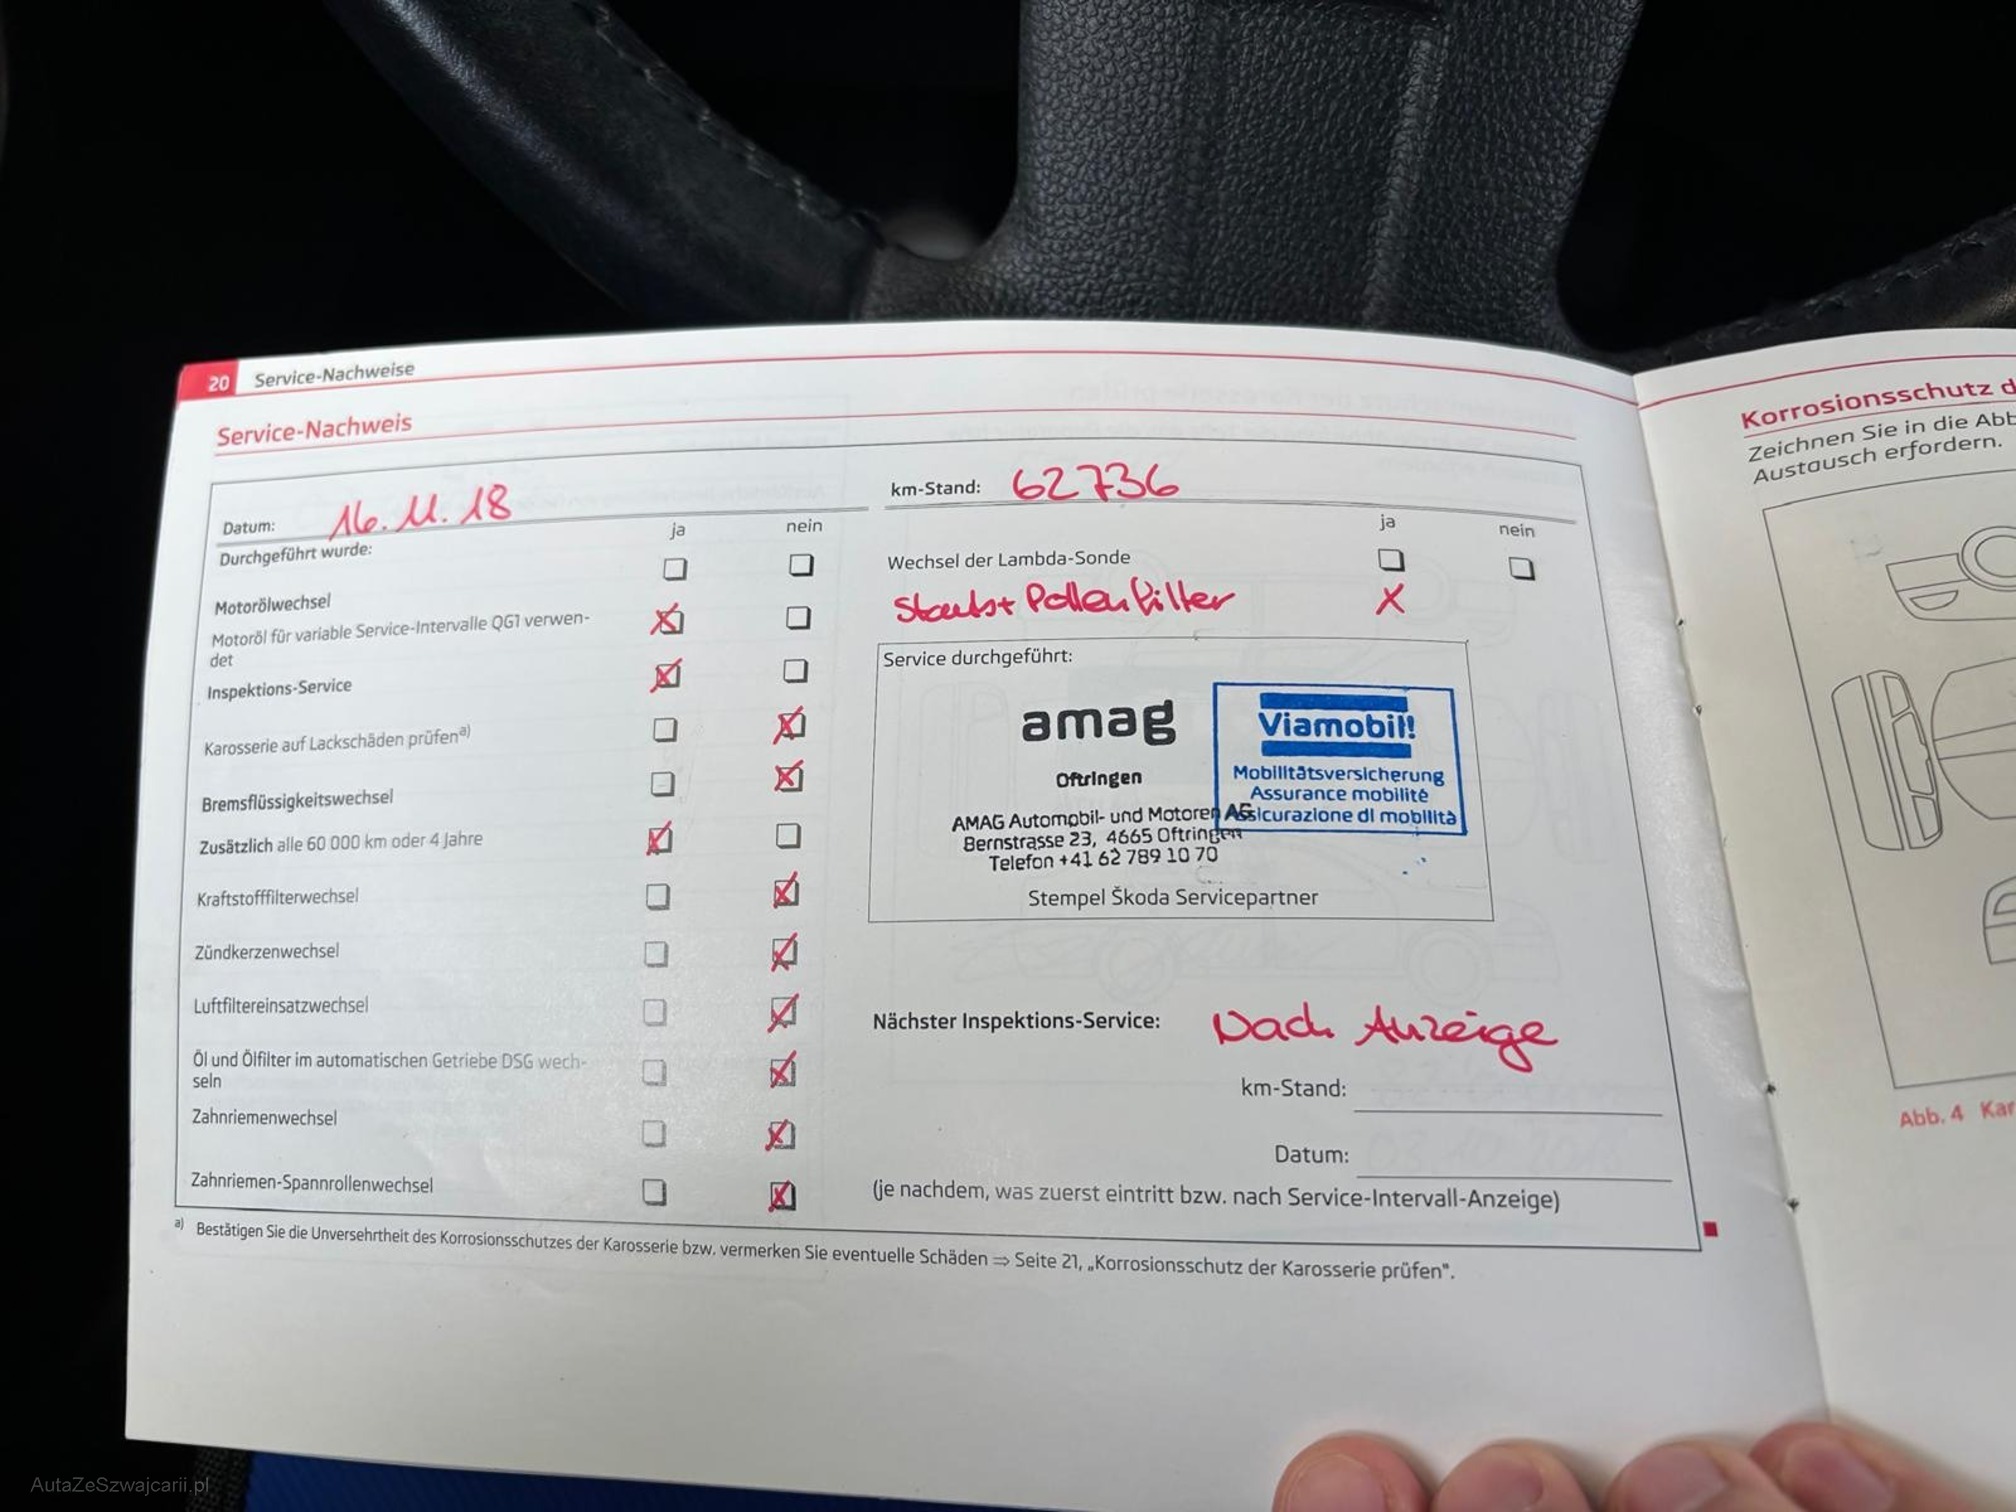 20 Service-Nachweise
Service-Nachweis
Datum: 16.11.18
ja nein
Durchgeführt wurde:
Motorölwechsel
Motoröl für variable Service-Intervalle QG1 verwen-
det
Inspektions-Service
Karosserie auf Lackschäden prüfen a)
Bremsflüssigkeitswechsel
Zusätzlich alle 60 000 km oder 4 Jahre
Kraftstofffilterwechsel
Zündkerzenwechsel
Luftfiltereinsatzwechsel
Öl und Ölfilter im automatischen Getriebe DSG wech-
seln
Zahnriemenwechsel
Zahnriemen-Spannrollenwechsel
km-Stand: 62736
ja nein
Wechsel der Lambda-Sonde
Staub+ Pollenfilter X
Service durchgeführt:
amag
Oftringen
AMAG Automobil- und Motoren AG
Bernstrasse 23, 4665 Oftringen
Telefon +41 62 789 10 70
Viamobil!
Mobilitätsversicherung
Assurance mobilité
Assicurazione di mobilità
Stempel Škoda Servicepartner
Nächster Inspektions-Service: Nach Anzeige
km-Stand:
Datum:
(je nachdem, was zuerst eintritt bzw. nach Service-Intervall-Anzeige)
a) Bestätigen Sie die Unversehrtheit des Korrosionsschutzes der Karosserie bzw. vermerken Sie eventuelle Schäden ⇒ Seite 21, „Korrosionsschutz der Karosserie prüfen".
Korrosionsschutz d
Zeichnen Sie in die Abb
Austausch erfordern.
Abb. 4 Kar
AutaZeSzwajcarii.pl